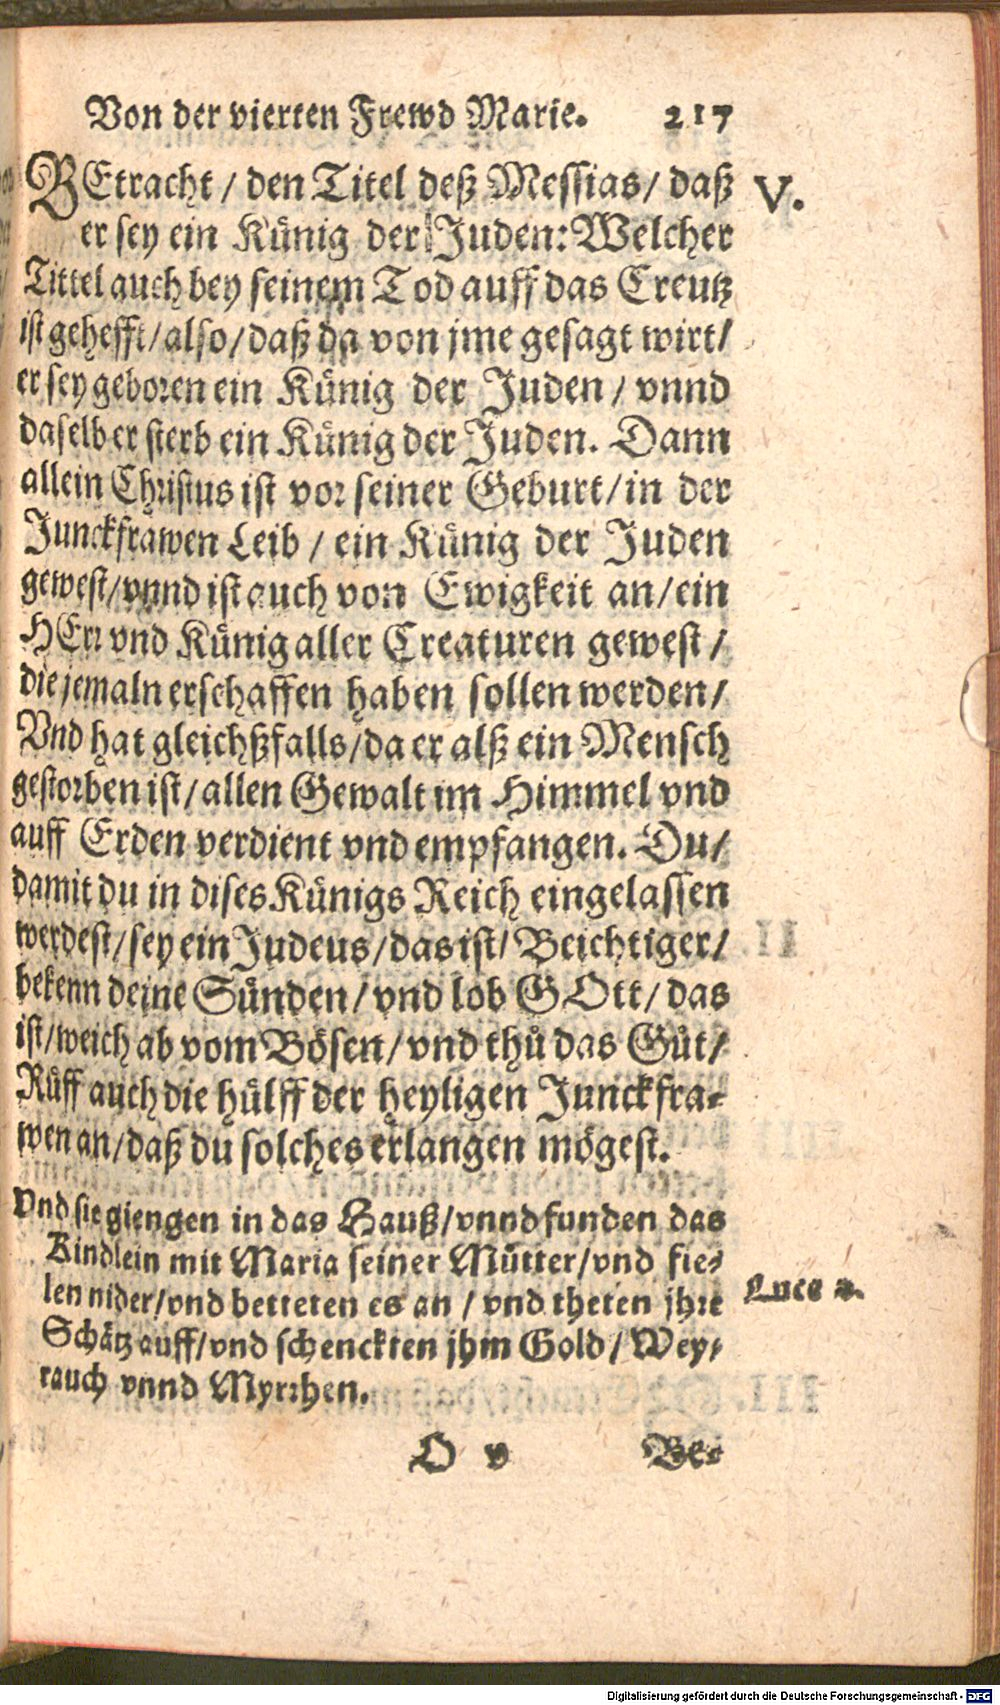 Von der vierten Frewd Marie. 217
BEtracht / den Titel deß Messias / daß V.
er sey ein Künig der Juden: Welcher
Tittel auch bey seinem Tod auff das Creutz
ist gehefft / also / daß da von jme gesagt wirt /
er sey geboren ein Künig der Juden / vnnd
daselb er sterb ein Künig der Juden. Dann
allein Christus ist vor seiner Geburt / in der
Junckfrawen Leib / ein Künig der Juden
gewest / vnnd ist auch von Ewigkeit an / ein
HErr vnd Künig aller Creaturen gewest /
die jemaln erschaffen haben sollen werden /
Vnd hat gleichßfalls / da er alß ein Mensch
gestorben ist / allen Gewalt im Himmel vnd
auff Erden verdient vnd empfangen. Du /
damit du in dises Künigs Reich eingelassen
werdest / sey ein Judeus / das ist / Beichtiger /
bekenn deine Sünden / vnd lob GOtt / das
ist / weich ab vom Bösen / vnd thů das Gůt /
Růff auch die hülff der heyligen Junckfra-
wen an / daß du solches erlangen mögest.
Vnd sie giengen in das Hauß / vnnd funden das
Kindlein mit Maria seiner Můtter / vnd fie-
len nider / vnd betteten es an / vnd theten jhre Luce 2.
Schätz auff / vnd schenckten jhm Gold / Wey-
rauch vnnd Myrrhen.
O v Be-
Digitalisierung gefördert durch die Deutsche Forschungsgemeinschaft - DFG